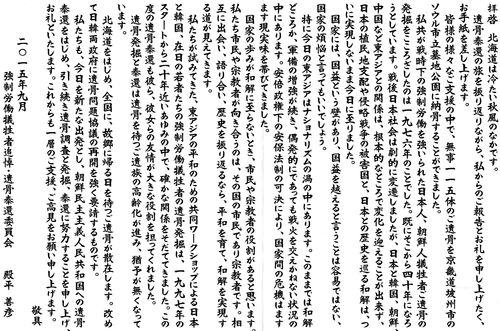 拝啓 北海道は冷たい秋風のなかです。
遺骨奉還の旅を振り返りながら、私からのご報告とお礼を申し上げたく
お手紙を差し上げます。
皆様の様々なご支援の中で、無事一一五体のご遺骨を京畿道坡州市の
ソウル市立墓地公園に納骨することができました。
私共が戦時下の強制労働を強いられた日本人、朝鮮人犠牲者に遺骨
発掘をこころざしたのは一九七六年のことでした。既にそこから四十年になろ
うとしています。戦後日本社会は劇的に変遷しましたが、日本と韓国、朝鮮
中国など東アジアとの関係は、根本的なところで変化を迎えることが出来ず
日本の植民地支配や侵略戦争の被害国と、日本との歴史を巡る和解は、つ
いに実現しないまま今日に至りました。
国家には、国益という壁があり、国益を越えると言うことは容易ではない、
国家の桎梏と言うてもいいでしょう。
特に今日の東アジアはナショナリズムの渦の中にあります。このままでは和解
どころか、軍備の増強が続き、偶発的にであっても戦火を交えかねない状況の
中にあります。安倍政権下の安保法制の可決により、国家間の危機はます
ます現実味を帯びてきました。
国家の歩みが和解に至らないとき、市民や宗教者の役割があると思います。
私たち市民や宗教者が向き合うのは、その国の市民であり宗教者です。相
互に出会い、語り合い、歴史を振り返るなら、平和を育て、和解を実現す
る道が見えてきます。
私たちが試みてきた、東アジアの平和のための共同ワークショップによる日本
と韓国、在日の若者たちの強制労働犠牲者の遺骨発掘は、一九九七年の
スタートから二十年近いあゆみの中で、確かな関係をそだててきました。この
度の遺骨奉還も彼ら、彼女らの友情が大きな役割を担ってくれました。
遺骨発掘と奉還は遺骨を待つご遺族の高齢化が進み、猶予が無くなって
います。
北海道をはじめ、全国に、故郷に帰る日を待つご遺骨が散在します。改め
て日韓両政府に遺骨問題協議の再開を強く要請するものです。
私たちも、今日を新たな出発とし、朝鮮民主主義人民共和国への遺骨
奉還をはじめ、引き続き遺骨調査と発掘、奉還に努力することを申し上げ、
お礼といたします。これからも一層のご支援、ご高見をお願い申し上げます。
敬具
二〇一五年九月
強制労働犠牲者追悼・遺骨奉還委員会 殿平 善彦